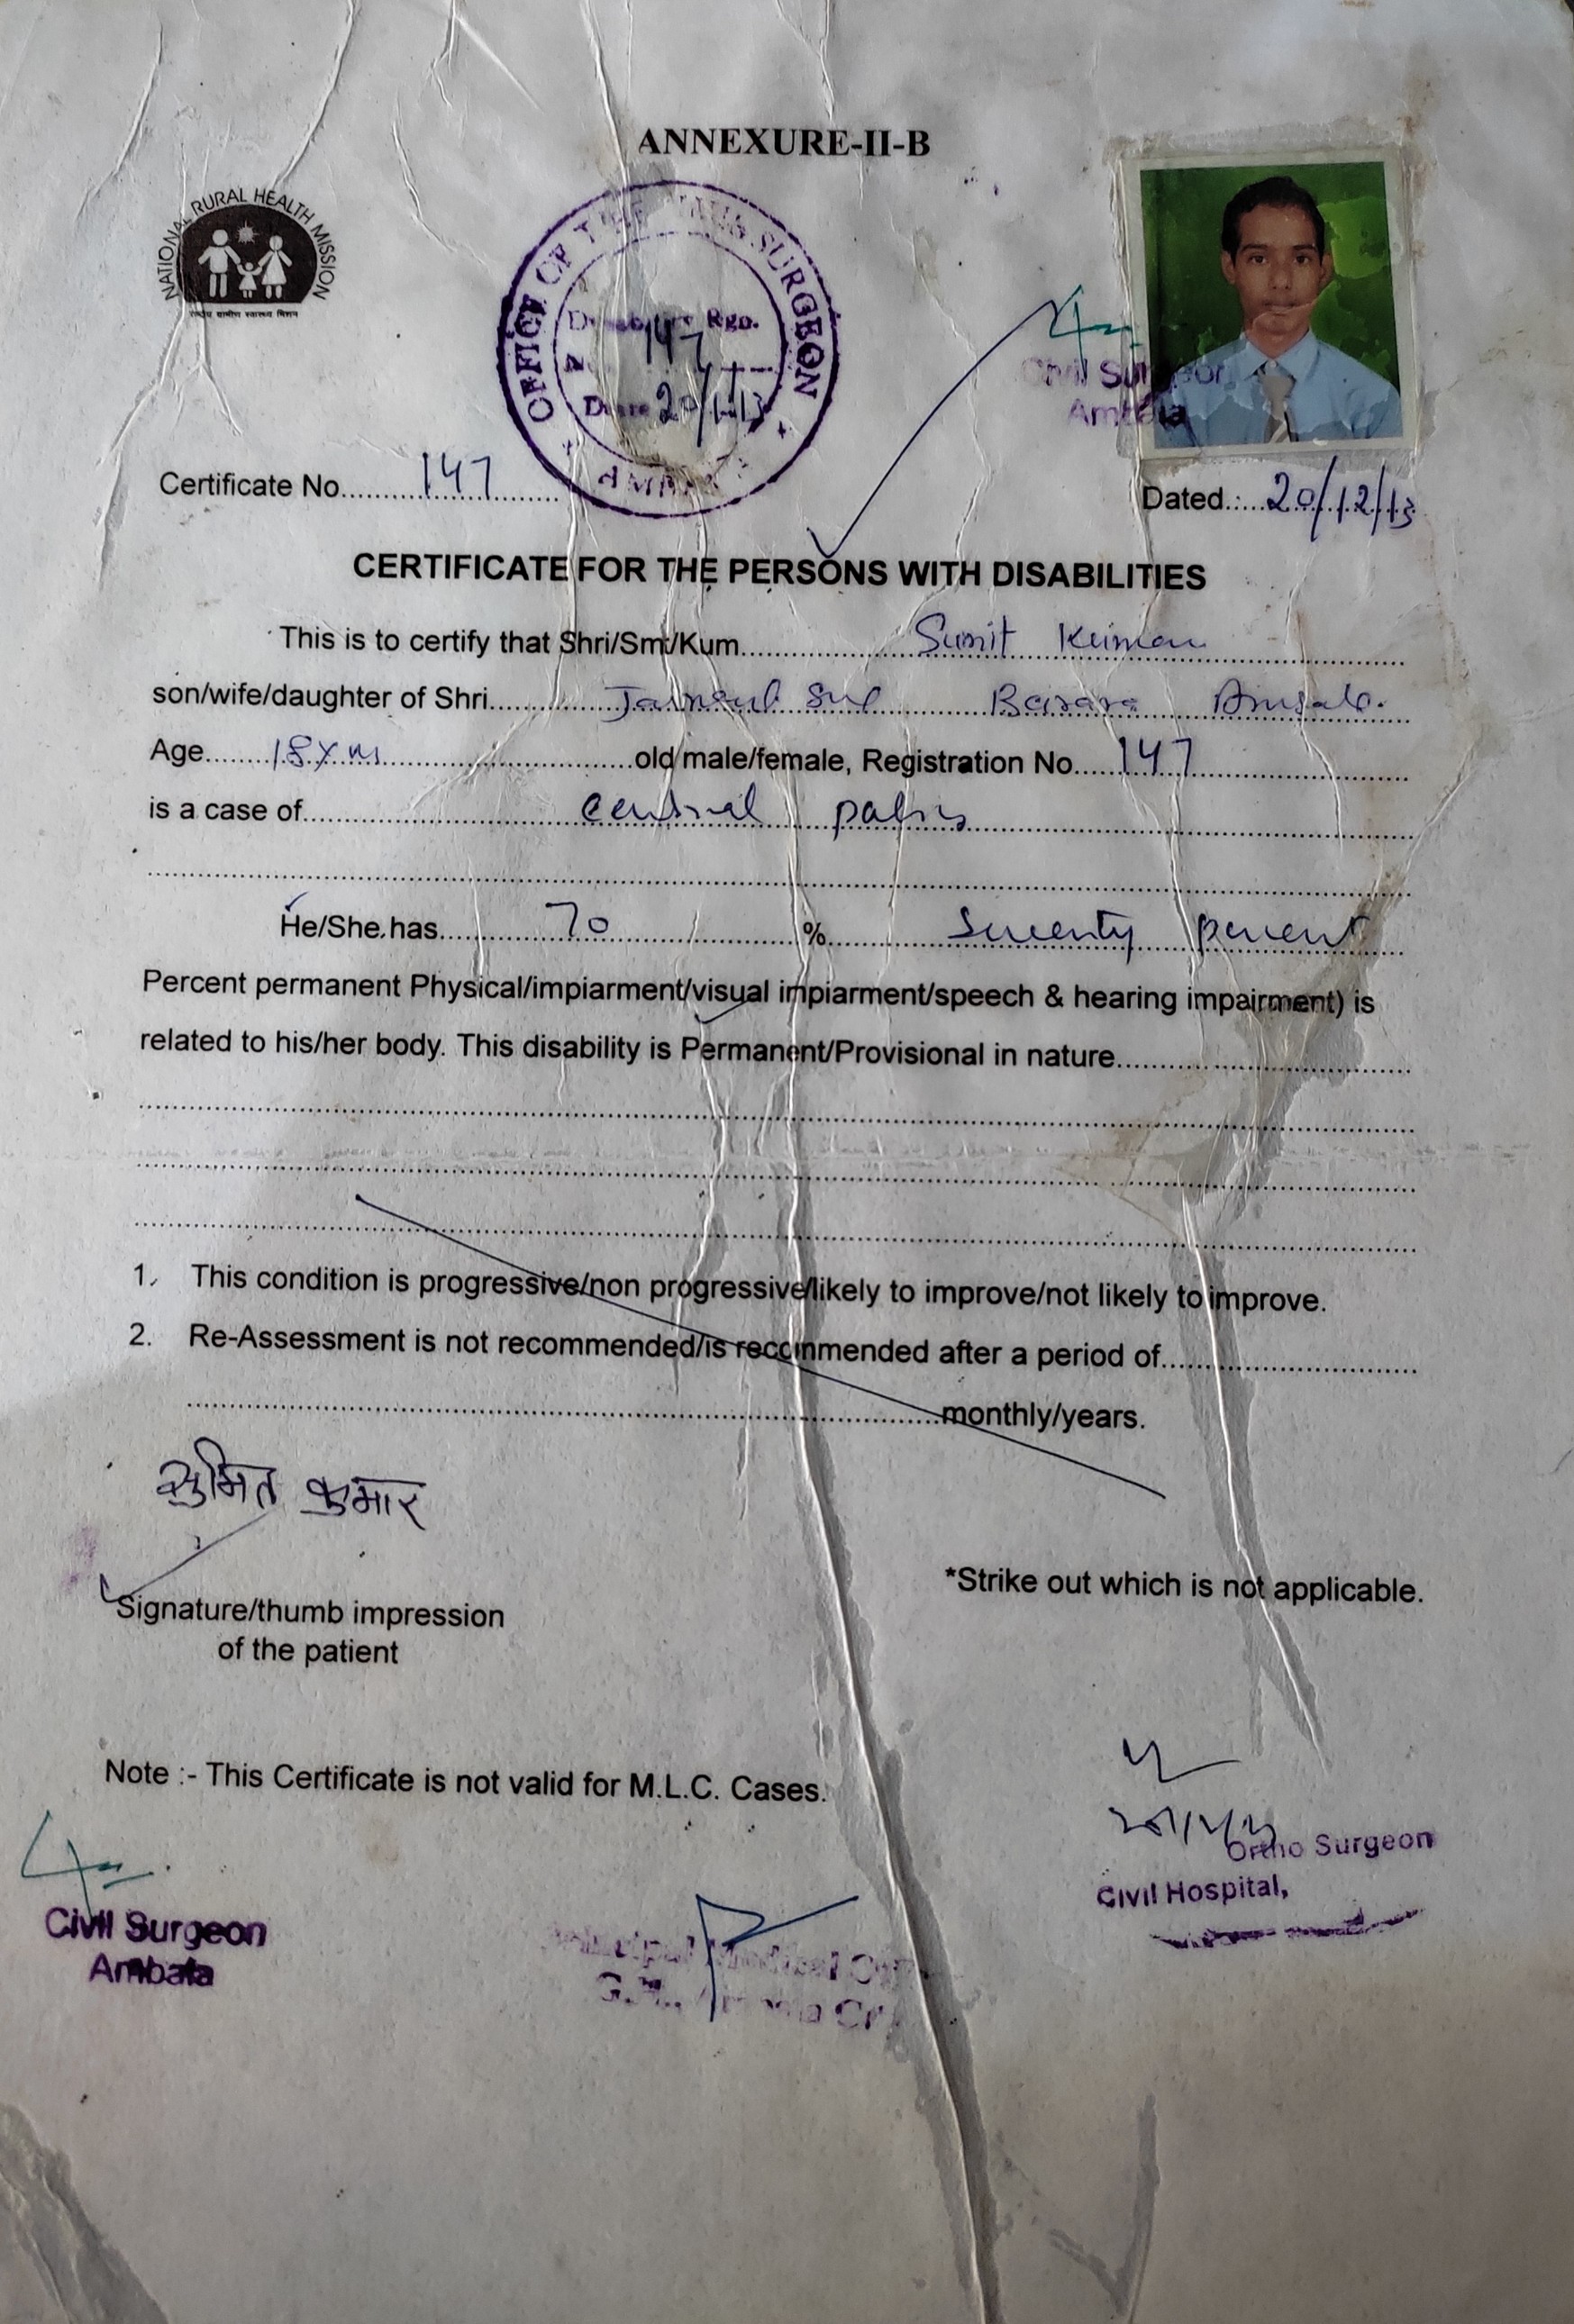 ANNEXURE-II-B
NATIONAL RURAL HEALTH MISSION
राष्ट्रीय ग्रामीण स्वास्थ्य मिशन
OFFICE OF THE CIVIL SURGEON
Rgo.
147
20/12/13
AMBALA
Civil Surgeon
Ambala
Certificate No. 147
Dated.: 20/12/13
CERTIFICATE FOR THE PERSONS WITH DISABILITIES
This is to certify that Shri/Smt/Kum. Sumit Kumar
son/wife/daughter of Shri. Barara Ambala.
Age 18 old male/female, Registration No. 147
is a case of cerebral palsy
He/She has 70 % Seventy percent
Percent permanent Physical/impiarment/visual impiarment/speech & hearing impairment) is
related to his/her body. This disability is Permanent/Provisional in nature
1. This condition is progressive/non progressive/likely to improve/not likely to improve.
2. Re-Assessment is not recommended/is recommended after a period of
monthly/years.
सुमित कुमार
*Strike out which is not applicable.
Signature/thumb impression
of the patient
Note :- This Certificate is not valid for M.L.C. Cases.
20/12/13
Ortho Surgeon
Civil Hospital,
Civil Surgeon
Ambala
Medical